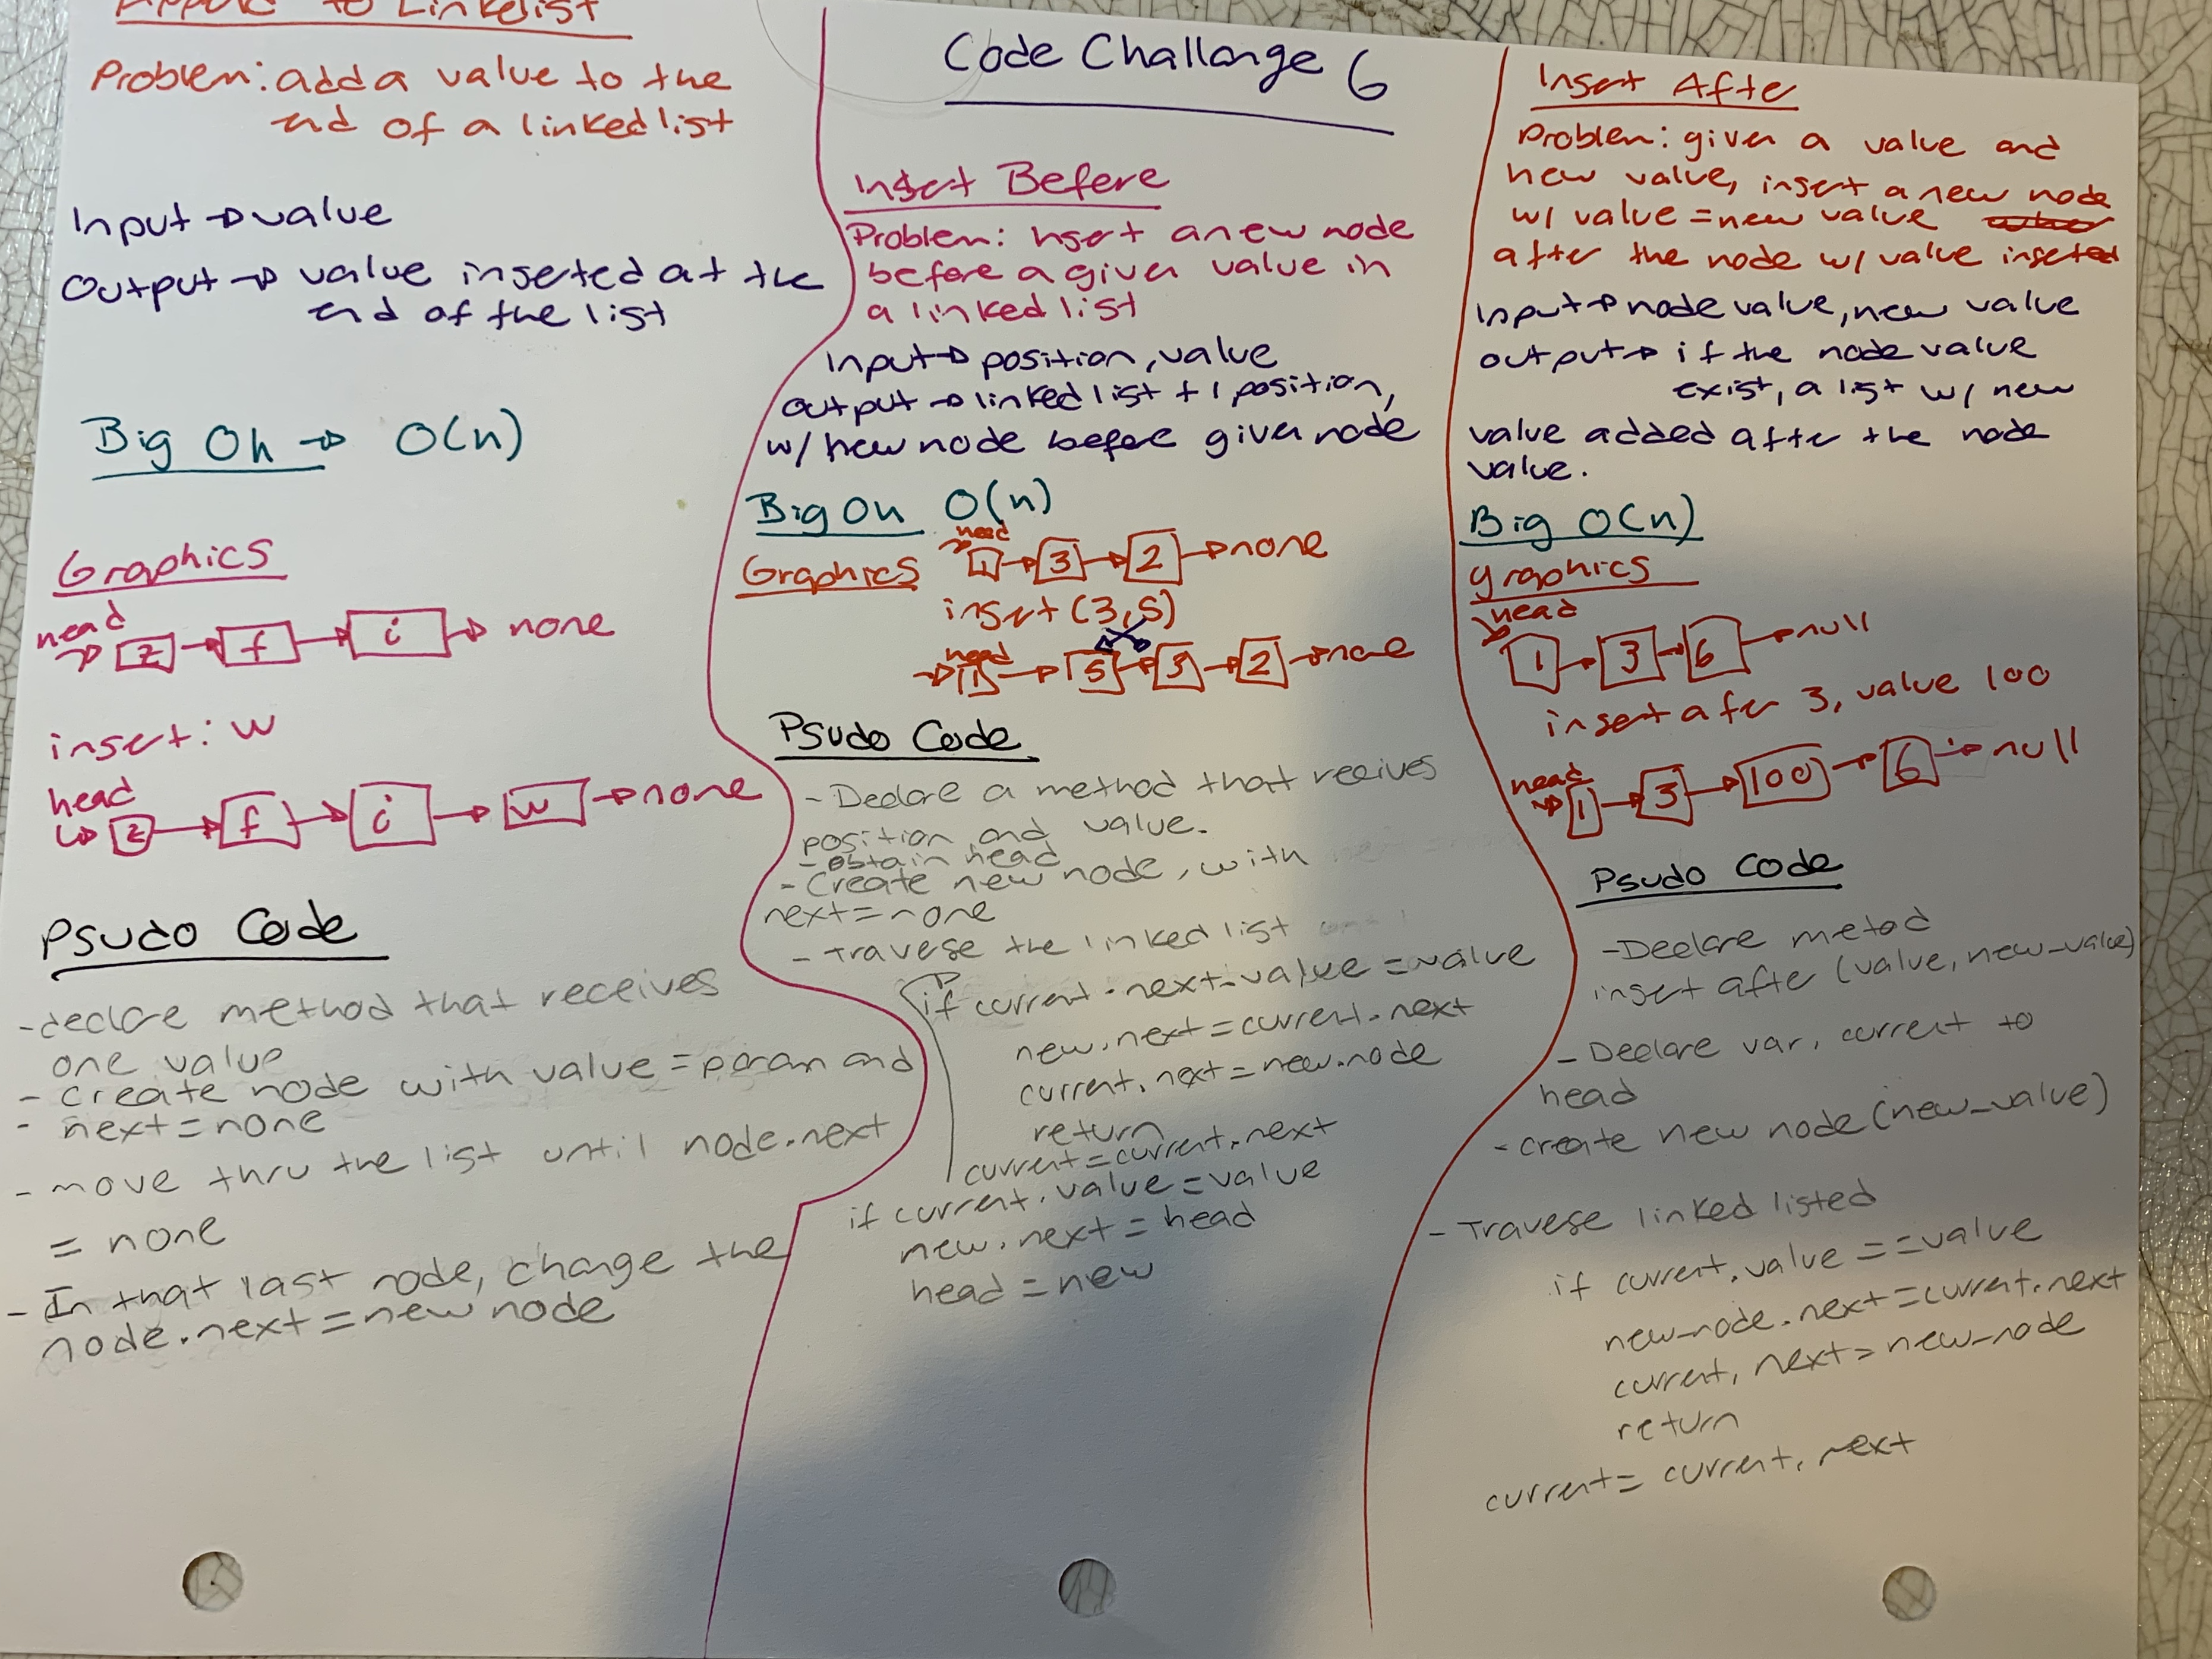 Append to Linkelist
Problem: add a value to the
end of a linked list
Input → value
Output → value inserted at the
end of the list
Big Oh → O(n)
Graphics
head
z → f → i → none
insert: w
head
z → f → i → w → none
Psudo Code
- declare method that receives
one value
- create node with value = param and
- next = none
- move thru the list until node.next
= none
- In that last node, change the
node.next = new node
Code Challange 6
Insert Before
Problem: Insert a new node
before a given value in
a linked list
Input → position, value
output → linked list + 1 position,
w/ new node before given node
Big Oh O(n)
Graphics
head
1 → 3 → 2 → none
insert (3,5)
head
1 → 5 → 3 → 2 → none
Psudo Code
- Declare a method that recives
position and value.
- obtain head
- Create new node, with
next = none
- Travese the linked list
if current.next.value = value
new.next = current.next
current.next = new.node
return
current = current.next
if current.value = value
new.next = head
head = new
Insert After
Problem: given a value and
new value, insert a new node
w/ value = new value
after the node w/ value inserted
Input → node value, new value
output → if the node value
exist, a list w/ new
value added after the node
value.
Big O(n)
graphics
head
1 → 3 → 6 → null
insert after 3, value 100
head
1 → 3 → 100 → 6 → null
Psudo Code
- Declare metod
insert after (value, new_value)
- Declare var, current to
head
- create new node (new_value)
- Travese linked listed
if current.value == value
new_node.next = current.next
current.next = new_node
return
current = current.next